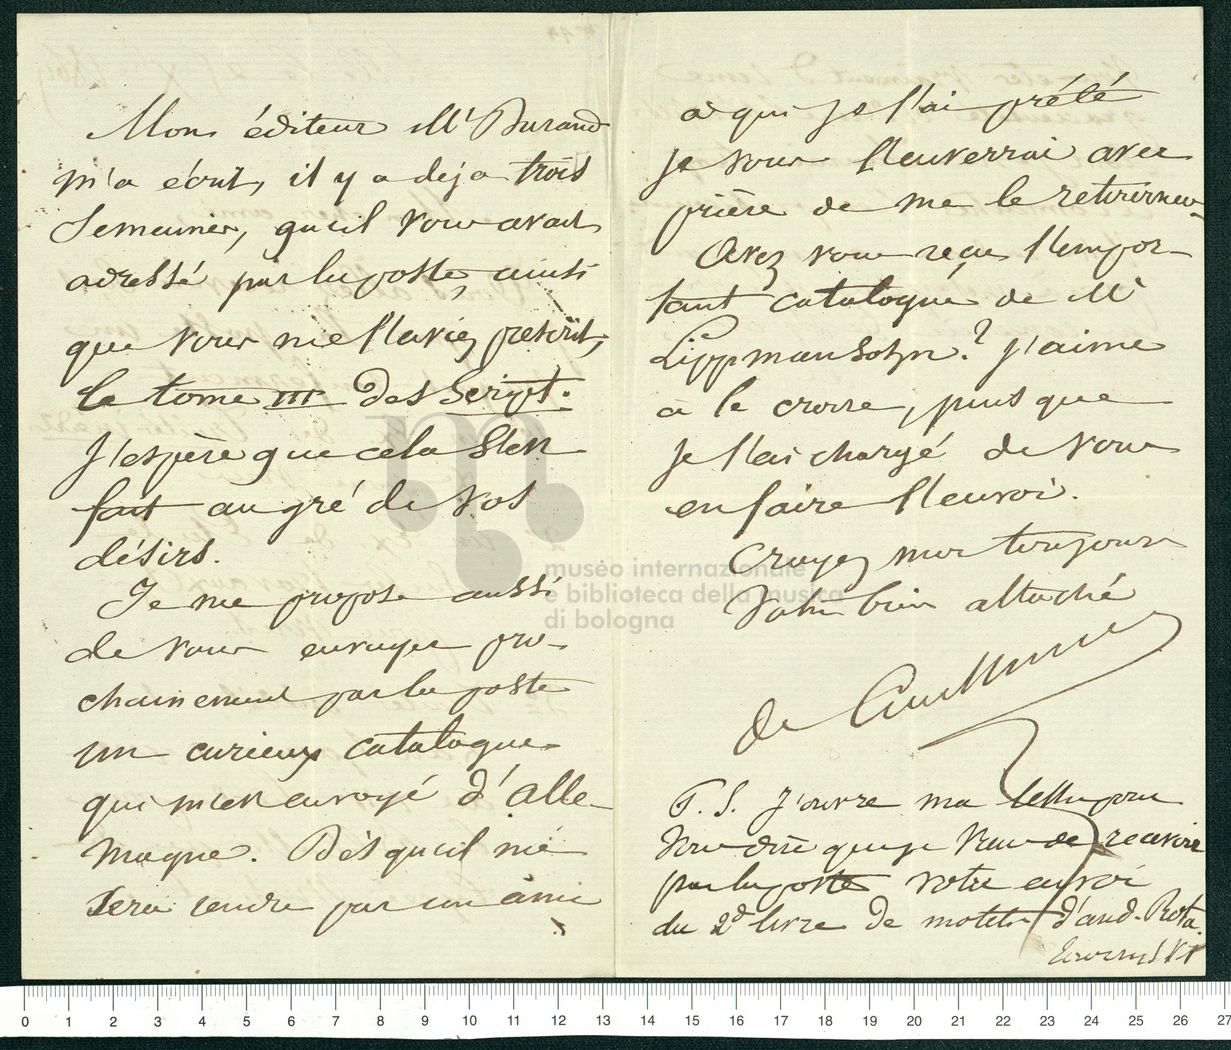 Mon éditeur Mr Durand
m'a écrit, il y a deja trois
Semaines, qu'il vous avait
adressé par la poste, ainsi
que vous me l'aviez prescrit,
le tome III des Script.
J'espère que cela s'est
fait au gré de vos
désirs.
Je me propose aussi
de vous envoyer pro-
chainement par la poste
un curieux catalogue
qui m'est envoyé d'Alle-
magne. Dès qu'il me
sera rendu par un ami
à qui je l'ai prété
je vous l'enverrai avec
prière de me le retourner
Avez vous reçu l'impor-
tant catalogue de Mr
Lippmansohn? J'aime
à le croire, puis que
je l'ai chargé de vous
en faire l'envoi.
Croyez moi toujours
Votre bien attaché
de Coussemaker
P. S. J'ouvre ma lettre pour
vous dire que je viens de recevoir
par la poste votre envoi
du 2d livre de motets d'and. Rota.
museo internazionale
e biblioteca della musica
di bologna
0 1 2 3 4 5 6 7 8 9 10 11 12 13 14 15 16 17 18 19 20 21 22 23 24 25 26 27